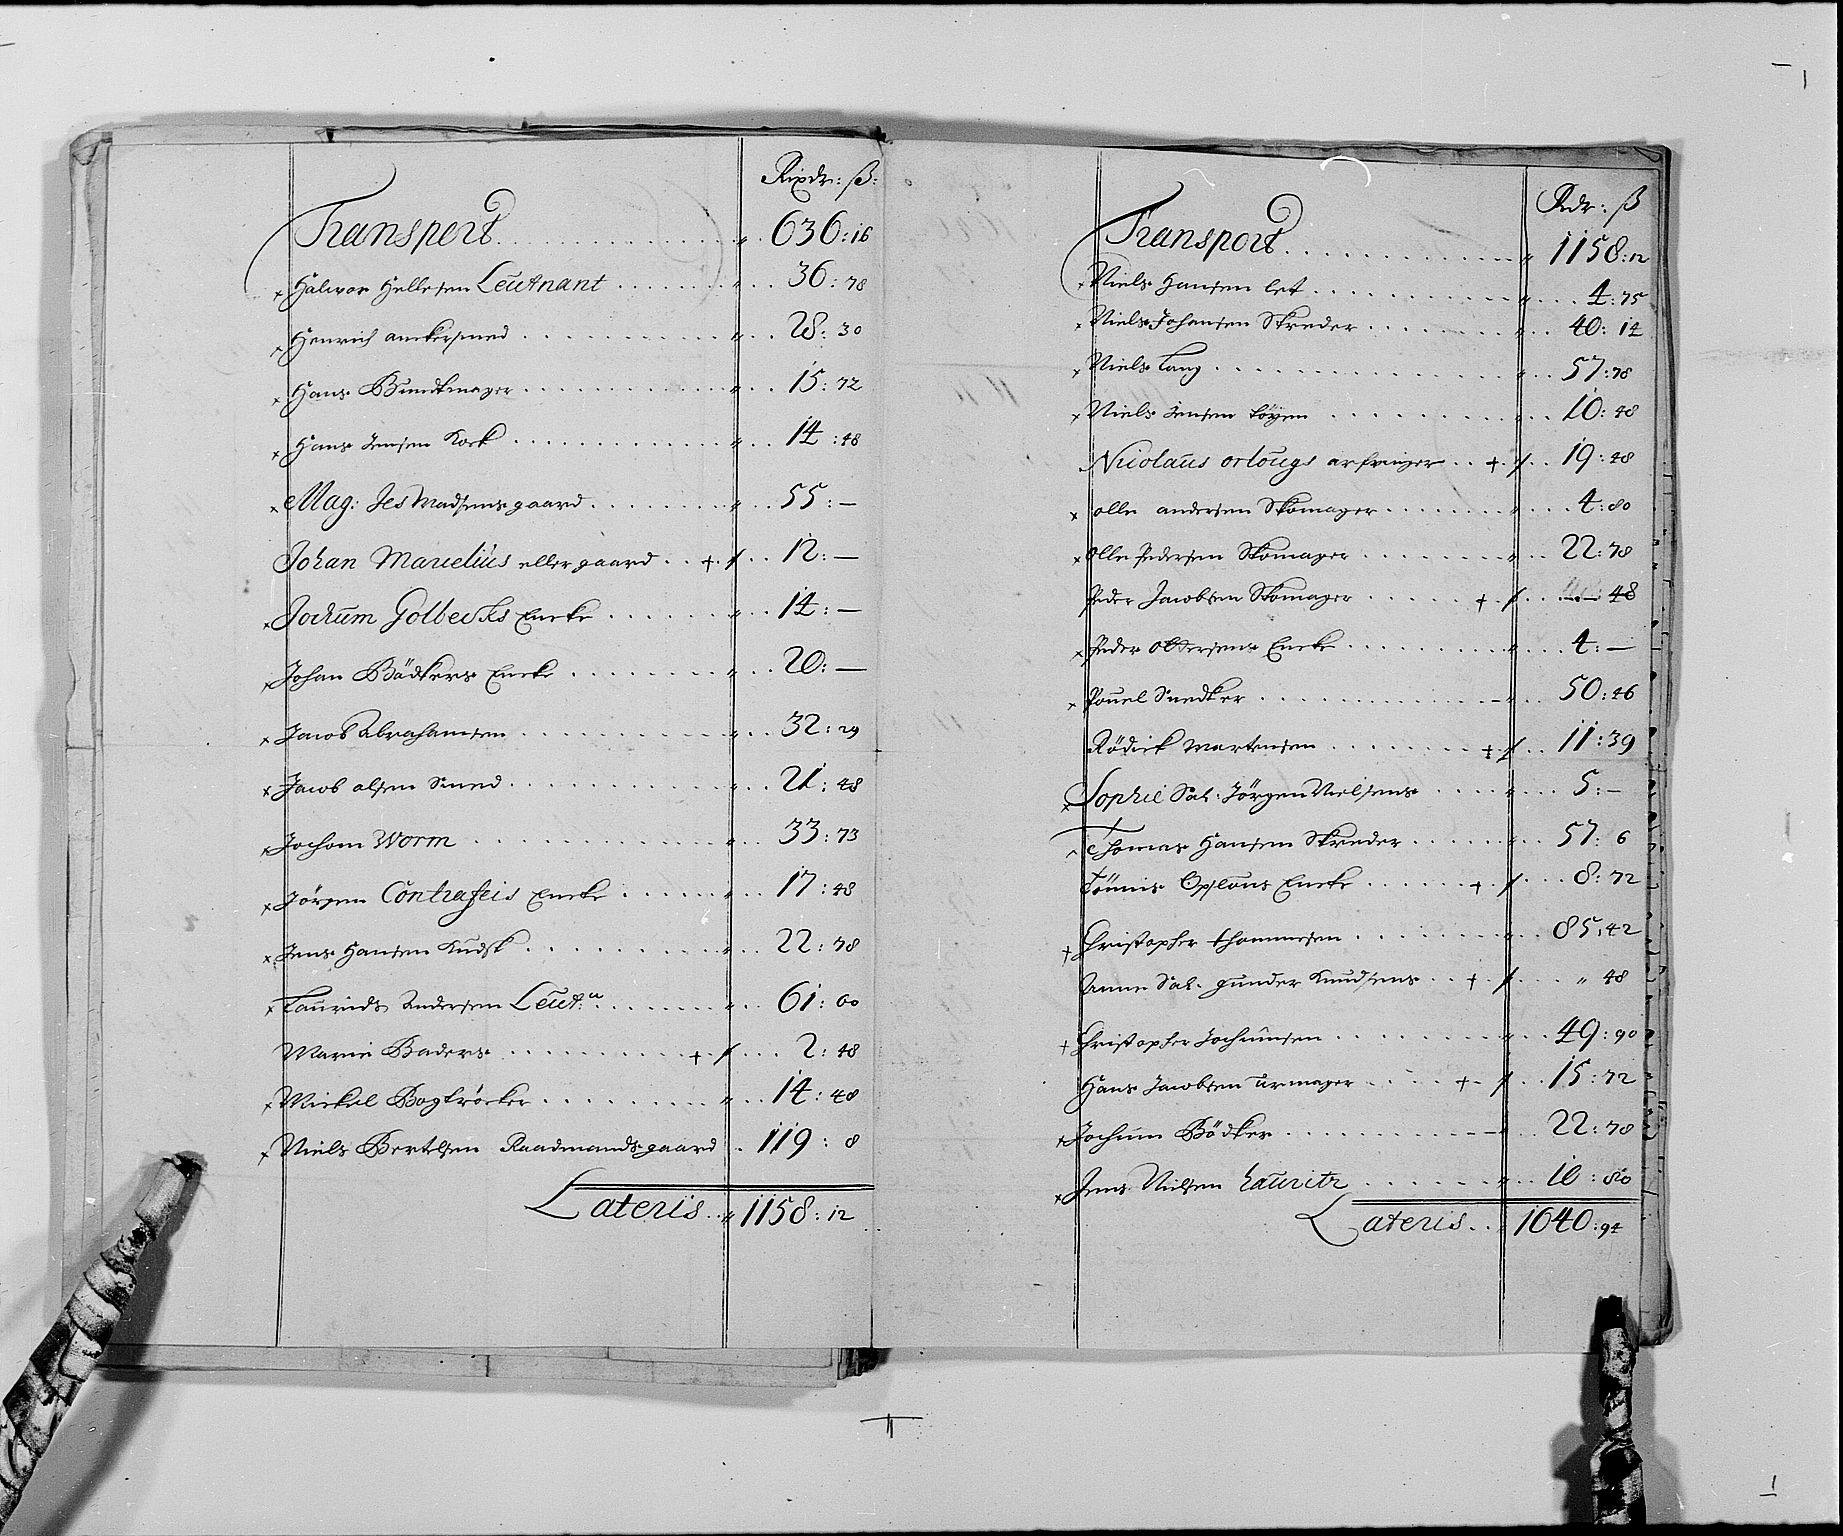 Rixdr: ß:
Transport . . . 636:16
x Halvor Hellesen Leutnant . . . 36:78
x Henrich anckersmed . . . 28:30
x Hans Bundtmager . . . 15:72
x Hans Jensen Kock . . . 14:48
x Mag: Jes Madsens gaard . . . 55:—
Johan Marcelius eller gaard . . + . 12:—
x Jochum Golbecks Encke . . . 14:—
x Johan Bödkers Encke . . . 20:—
x Jacob Abrahamsen . . . 32:29
x Jacob olsen Smed . . . 21:48
x Jochom Worm . . . 33:73
x Jörgen Contrafeis Encke . . . 17:48
x Jens Hansen Kudsk . . . 22:78
x Laurids Andersen Leut: . . . 61:60
Marie Baders . . . + . 2:48
x Mickel Bogtröcker . . . 14:48
x Niels Bertelsen Raadmands gaard . . 119:8
Lateris . . 1158:12
Rdr: ß
Transport . . . 1158:12
Niels Hansen let . . . 4:75
x Niels Johansen Skreder . . . 40:14
x Niels Lang . . . 57:78
x Niels Jensen . . . 10:48
Nicolaus orlougs arfvinger . . + . 19:48
x olle andersen Skomager . . . 4:80
x Olle Pedersen Skomager . . . 22:78
Peder Jacobsen Skomager . . . + . — 48
x Peder Ottersens Encke . . . 4:—
x Pouel Snedker . . . 50:46
Rödick Martensen . . . + . 11:39
x Sophie Sal: Jörgen Nielsens . . . 5:—
Thomas Hansen Skreder . . . 57:6
Tönnis Encke . . . + . 8:72
+ Christopher thommesen . . . 85:42
Anne Sal. gunder Knudsens . . + . „ 48
+ Christopher Jochumsen . . . 49:90
Hans Jacobsen urmager . . . + . 15:72
x Jochum Bödker . . . 22:78
x Jens Nielsen Lauritz . . . 10:80
Lateris . . 1640:94